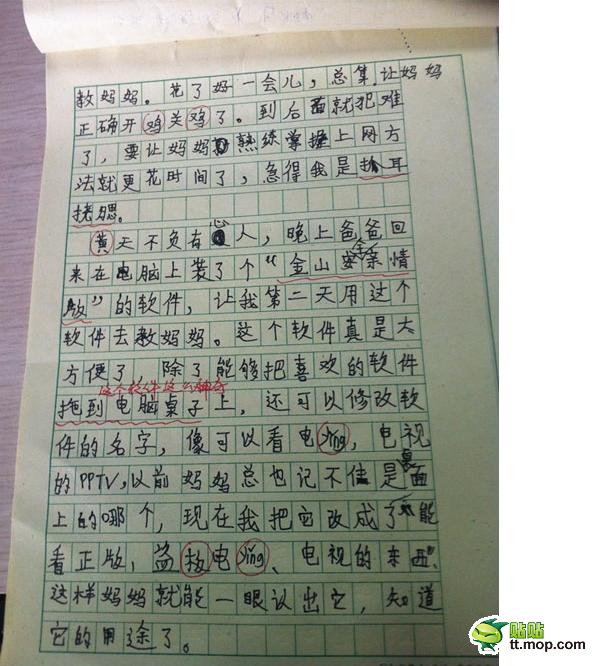 教妈妈。花了好一会儿，总集让妈妈
正确开鸡关鸡了。到后面就犯难
了，要让妈妈熟练掌握上网方
法就更花时间了，急得我是抓耳
挠腮。
黄天不负有心人，晚上爸爸回
来在电脑上装了个“金山安全亲情
版”的软件，让我第二天用这个
软件去教妈妈。这个软件真是太
方便了，除了能够把喜欢的软件
这个软件这么神奇
拖到电脑桌子上，还可以修改软
件的名字，像可以看电ying，电视
的PPTV，以前妈妈总也记不住是里面
上的哪个，现在我把它改成了“能
看正版，盗板电ying、电视的东西”，
这样妈妈就能一眼认出它，知道
它的用途了。
贴贴
tt.mop.com